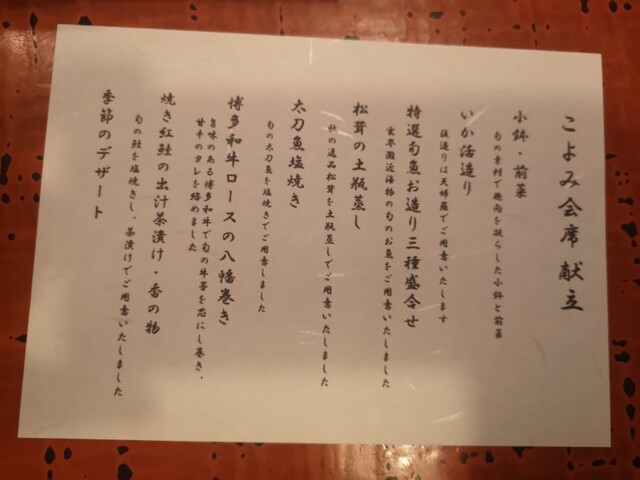 こよみ会席 献立
小鉢・前菜
旬の素材で趣向を凝らした小鉢と前菜
いか活造り
後造りは天婦羅でご用意いたします
特選旬魚お造り三種盛合せ
玄界灘近海物の旬のお魚をご用意いたしました
松茸の土瓶蒸し
秋の逸品松茸を土瓶蒸しでご用意いたしました
太刀魚塩焼き
旬の太刀魚を塩焼きでご用意しました
博多和牛ロースの八幡巻き
旨味のある博多和牛で旬の牛蒡を芯にし巻き、
甘辛のタレを絡めました
焼き紅鮭の出汁茶漬け・香の物
旬の鮭を塩焼きし、茶漬けでご用意いたしました
季節のデザート